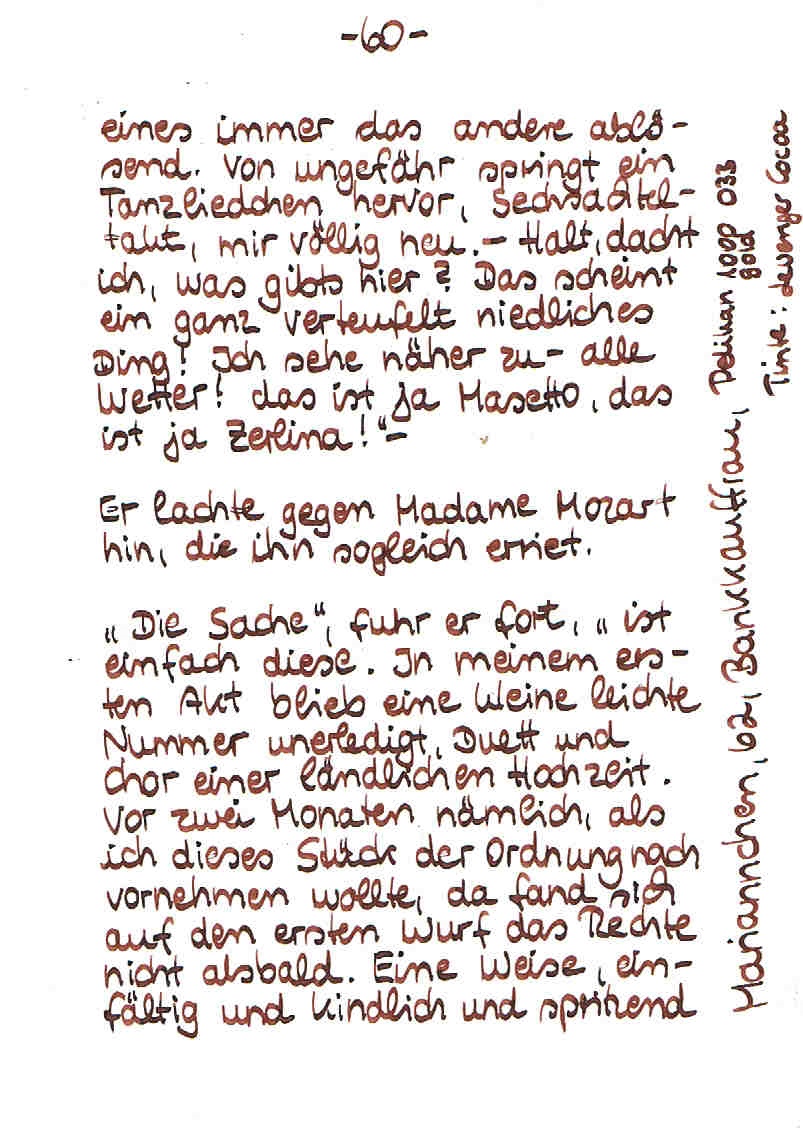 -60-
eines immer das andere ablö-
send. Von ungefähr springt ein
Tanzliedchen hervor, Sechsachtel-
takt, mir völlig neu. - Halt, dacht
ich, was gibts hier? Das scheint
ein ganz verteufelt niedliches
Ding! Ich sehe näher zu - alle
Wetter! das ist ja Masetto, das
ist ja Zerlina!" -
Er lachte gegen Madame Mozart
hin, die ihn sogleich erriet.
„Die Sache", fuhr er fort, „ist
einfach diese. In meinem ers-
ten Akt blieb eine kleine leichte
Nummer unerledigt, Duett und
Chor einer ländlichen Hochzeit.
Vor zwei Monaten nämlich, als
ich dieses Stück der Ordnung nach
vornehmen wollte, da fand sich
auf den ersten Wurf das Rechte
nicht alsbald. Eine Weise, ein-
fältig und kindlich und spritzend
Mariannchen, 62, Bankkauffrau, Pelikan 100P 033
gold
Tinte: deVenger Cocoa